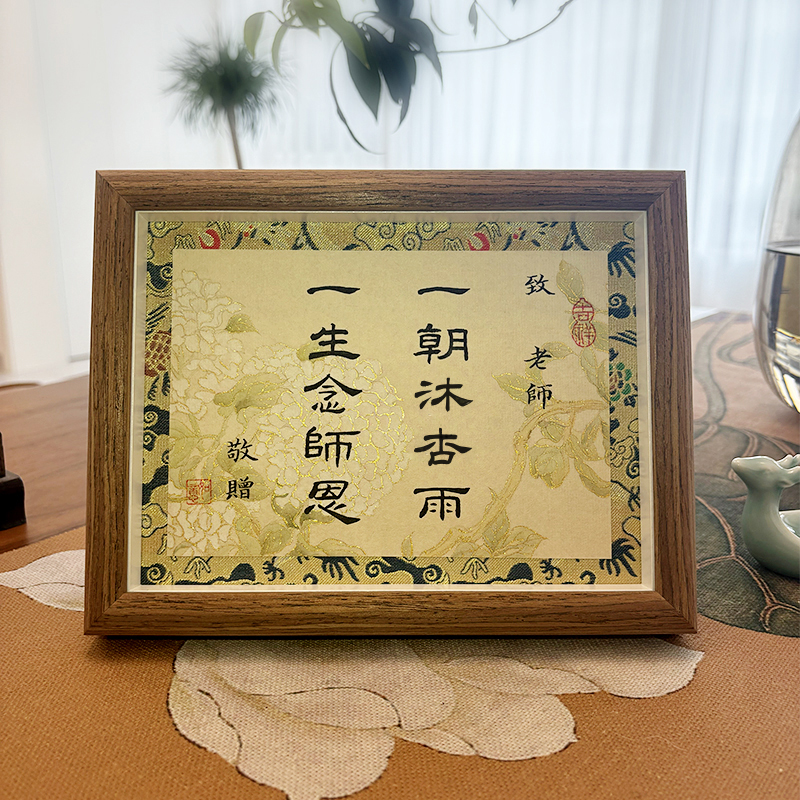 致 老師
吉祥
一朝沐杏雨
一生念師恩
敬贈